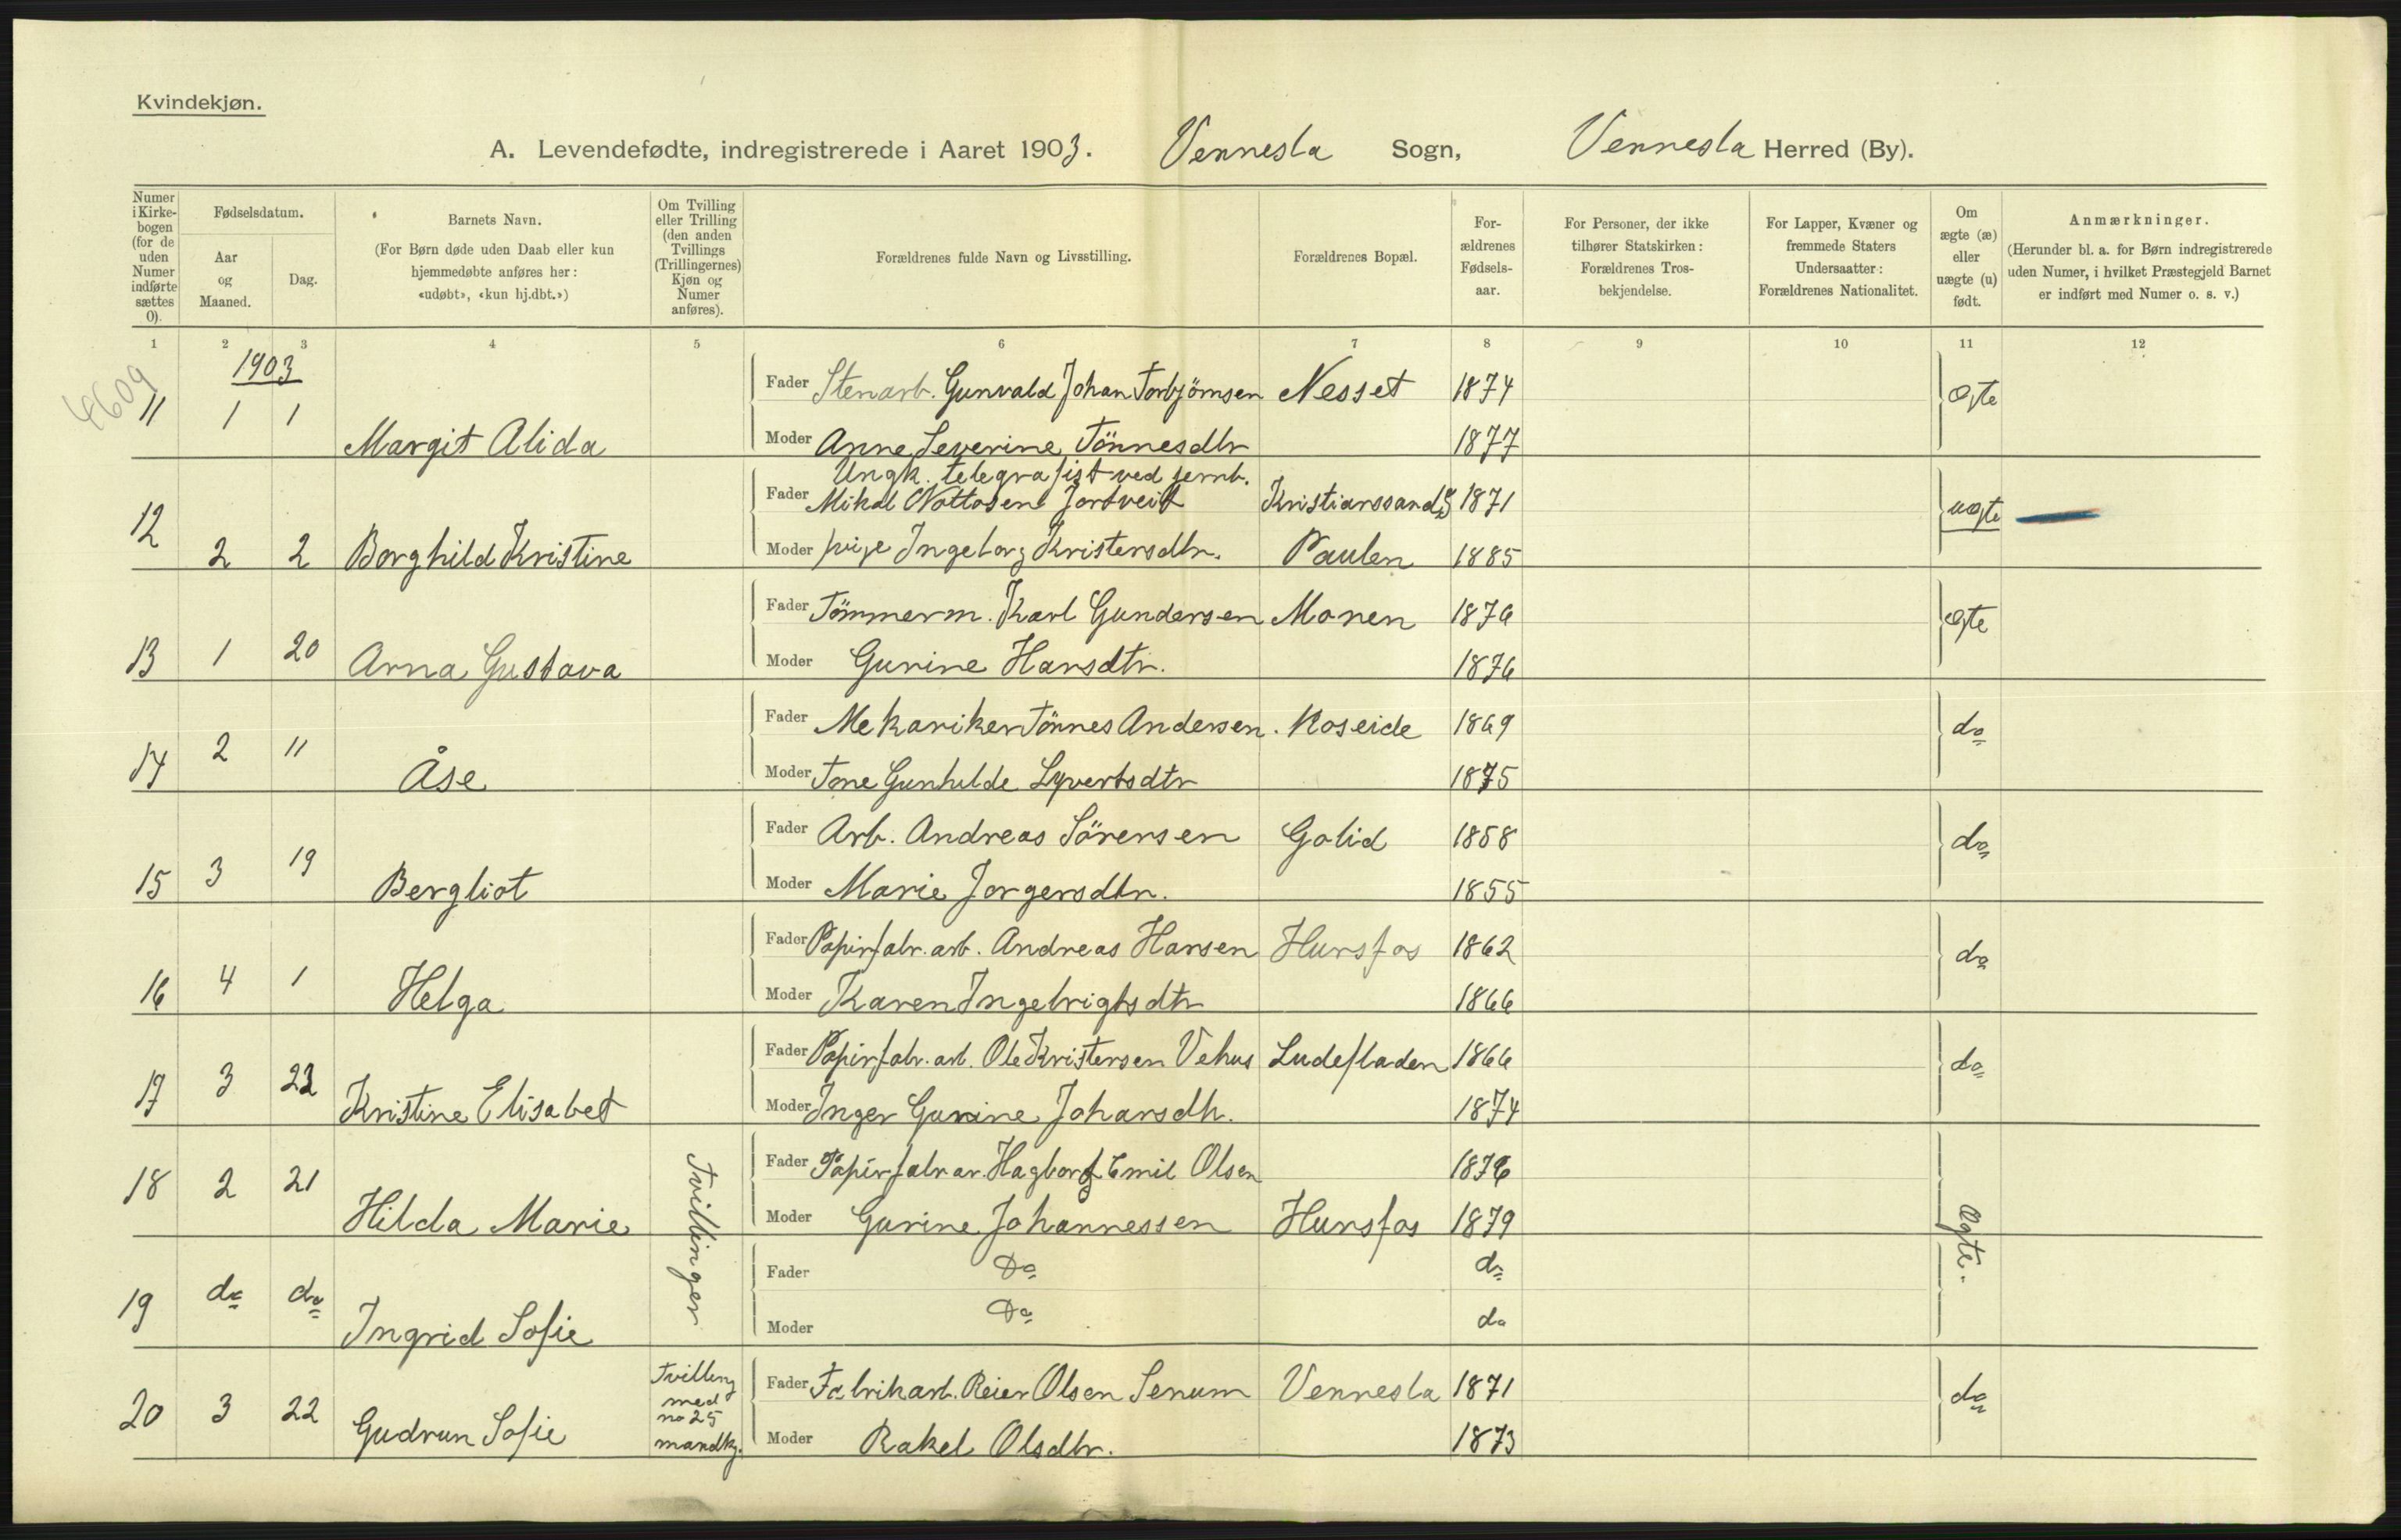 Kvindekjøn.
A. Levendefødte, indregistrerede i Aaret 1903. Vennesla Sogn, Vennesla Herred (By).
Numer i Kirkebogen (for de uden Numer indførte sættes 0).
Fødselsdatum.
Aar og Maaned.
Dag.
Barnets Navn.
(For Børn døde uden Daab eller kun hjemmedøbte anføres her: «udøbt», «kun hj.dbt.»)
Om Tvilling eller Trilling (den anden Tvillings (Trillingernes) Kjøn og Numer anføres).
Forældrenes fulde Navn og Livsstilling.
Forældrenes Bopæl.
For-ældrenes Fødsels-aar.
For Personer, der ikke tilhører Statskirken: Forældrenes Tros-bekjendelse.
For Lapper, Kvæner og fremmede Staters Undersaatter: Forældrenes Nationalitet.
Om ægte (æ) eller uægte (u) født.
Anmærkninger.
(Herunder bl. a. for Børn indregistrerede uden Numer, i hvilket Præstegjeld Barnet er indført med Numer o. s. v.)
1 2 3 4 5 6 7 8 9 10 11 12
4609
1903
11 1 1 Margit Alida Fader Stenarb. Gunvald Johan Torbjörnsen Nesset 1874 Ægte
Moder Anne Severine Tönnesdtr 1877
Ungk. telegrafist ved jernb.
12 2 2 Borghild Kristine Fader Mikal Nottosen Jortveit Kristianssand S 1871 uægte
Moder pige Ingeborg Kristensdtr. Paulen 1885
13 1 20 Arna Gustava Fader Tömmerm. Karl Gundersen Monen 1876 ægte
Moder Gurine Hansdtr. 1876
14 2 11 Åse Fader Mekaniker Tönnes Andersen. Roseide 1869 do
Moder Tone Gunhilde Syvertsdtr 1875
15 3 19 Bergliot Fader Arb. Andreas Sörensen Golid 1858 do
Moder Marie Jorgensdtr. 1855
16 4 1 Helga Fader Papirfabr. arb. Andreas Hansen Hunsfos 1862 do
Moder Karen Ingebrigtsdtr 1866
17 3 22 Kristine Elisabet Fader Papirfabr. arb. Ole Kristensen Vehus Ludefladen 1866 do
Moder Inger Gurine Johansdtr. 1874
18 2 21 Hilda Marie Tvillinger Fader Papirfabr ar. Hagbart Emil Olsen 1876 Ægte.
Moder Gurine Johannessen Hunsfos 1879
19 do do Ingrid Sofie Fader Do do
Moder Do do
20 3 22 Gudrun Sofie Tvilling med no 25 mandkj. Fader Fabrikarb. Reier Olsen Senum Vennesla 1871 do
Moder Rakel Olsdtr. 1873